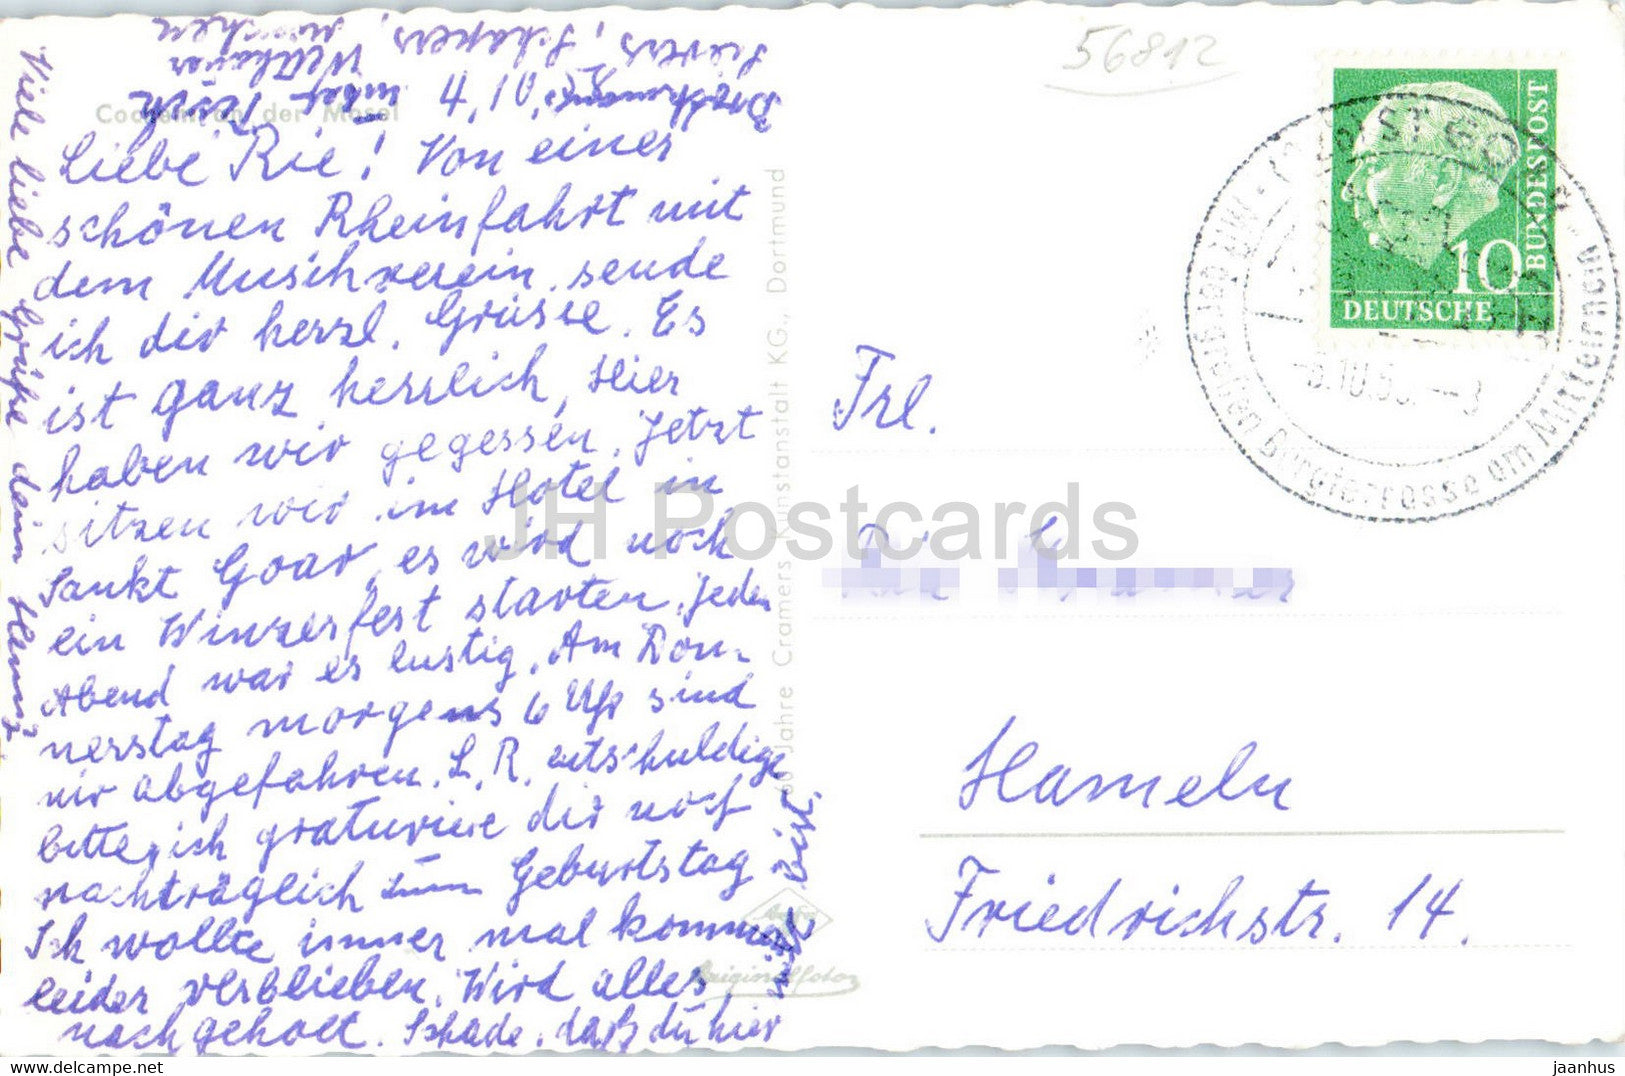 56812
Cochem an der Mosel
4.10.
Liebe Rie! Von einer
schönen Rheinfahrt mit
dem Musikverein sende
ich dir herzl. Grüsse. Es
ist ganz herrlich, Hier
haben wir gegessen. Jetzt
sitzen wir im Hotel in
Sankt Goar, es wird noch
ein Winzerfest starten. Jeden
Abend war es lustig. Am Don-
nerstag morgens 6 Uhr sind
wir abgefahren. L. R. entschuldige
bitte, ich gratuliere dir noch
nachträglich zum Geburtstag
Ich wollte immer mal kommen
leider verblieben. Wird alles
nachgeholt. Schade, daß du hier
nicht bist.
Viele liebe Grüße dein
Jahre Cramers Kunstanstalt KG., Dortmund
Originalfoto
DEUTSCHE
BUNDESPOST
10
Frl.
Hameln
Friedrichstr. 14.
JH Postcards
jaanhus - hippostcard.com